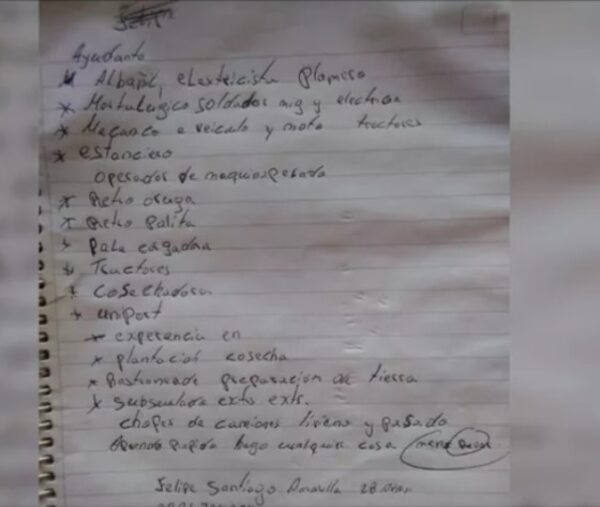 Ayudante
* Albañil, electricista plomero
* Metalurgico soldados mig y electrica
* Mecanco e veiculo y moto tractores
* estanciero
Operador de maquina pesada
* Retro oruga
* Retro Palita
* Pala cargadora
* Tractores
* Cosechadora
* uniport
* experencia en
* plantacion cosecha
* preparacion de tierra
* subsoladora exts exts.
chofer de camiones liviano y pesado
hago cualquier cosa
Felipe Santiago 28